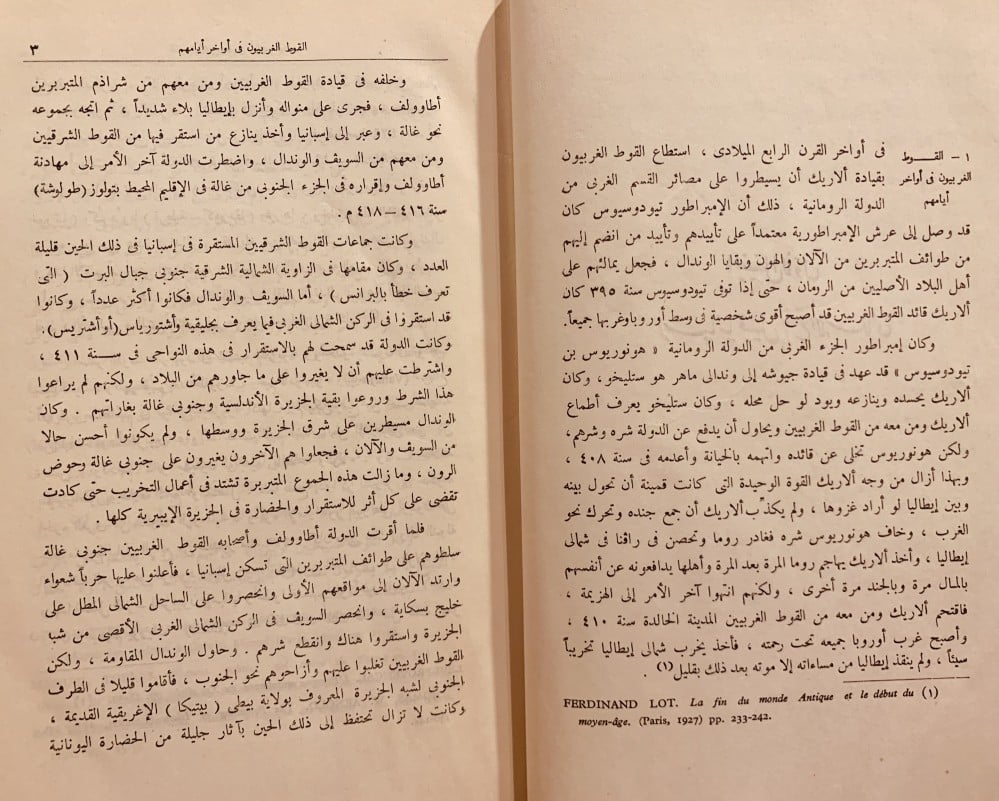 ١ – القــوط
الغربيون فى أواخر
أيامهم
فى أواخر القرن الرابع الميلادى ، استطاع القوط الغربيون
بقيادة ألاريك أن يسيطروا على مصائر القسم الغربى من
الدولة الرومانية ، ذلك أن الإمبراطور تيودوسيوس كان
قد وصل إلى عرش الإمبراطورية معتمداً على تأييدهم وتأييد من انضم إليهم
من طوائف المتبربرين من الآلان والهون وبقايا الوندال ، فجعل يمالئهم على
أهل البلاد الأصليين من الرومان ، حتى إذا توفى تيودوسيوس سنة ٣٩٥ كان
ألاريك قائد القوط الغربيين قد أصبح أقوى شخصية فى وسط أوروبا وغربها جميعاً.
وكان إمبراطور الجزء الغربى من الدولة الرومانية « هونوريوس بن
تيودوسيوس » قد عهد فى قيادة جيوشه إلى وندالى ماهر هو ستليخو ، وكان
ألاريك يحسده وينازعه ويود لو حل محله ، وكان ستليخو يعرف أطماع
ألاريك ومن معه من القوط الغربيين ويحاول أن يدفع عن الدولة شره وشرهم،
ولكن هونوريوس تخلى عن قائده واتهمه بالخيانة وأعدمه فى سنة ٤٠٨ ،
وبهذا أزال من وجه ألاريك القوة الوحيدة التى كانت قمينة أن تحول بينه
وبين إيطاليا لو أراد غزوها ، ولم يكذِّب ألاريك أن جمع جنده وتحرك نحو
الغرب ، وخاف هونوريوس شره فغادر روما وتحصن فى راڤنا فى شمالى
إيطاليا ، وأخذ ألاريك يهاجم روما المرة بعد المرة وأهلها يدافعونه عن أنفسهم
بالمال مرة وبالجند مرة أخرى ، ولكنهم انتهوا آخر الأمر إلى الهزيمة ،
فاقتحم ألاريك ومن معه من القوط الغربيين المدينة الخالدة سنة ٤١٠ ،
وأصبح غرب أوروبا جميعه تحت رحمته ، فأخذ يخرب شمالى إيطاليا تخريباً
سيئاً ، ولم ينقذ إيطاليا من مساءاته إلا موته بعد ذلك بقليل (١) .
(١) FERDINAND LOT. La fin du monde Antique et le début du
moyen-âge. (Paris, 1927) pp. 233-242.
القوط الغربيون فى أواخر أيامهم ٣
وخلفه فى قيادة القوط الغربيين ومن معهم من شراذم المتبربرين
أطاوولف ، فجرى على منواله وأنزل بإيطاليا بلاء شديداً ، ثم اتجه بجموعه
نحو غالة ، وعبر إلى إسبانيا وأخذ ينازع من استقر فيها من القوط الشرقيين
ومن معهم من السويف والوندال ، واضطرت الدولة آخر الأمر إلى مهادنة
أطاوولف وإقراره فى الجزء الجنوبى من غالة فى الإقليم المحيط بتولوز (طولوشة)
سنة ٤١٦ – ٤١٨ م .
وكانت جماعات القوط الشرقيين المستقرة فى إسبانيا فى ذلك الحين قليلة
العدد ، وكان مقامها فى الزاوية الشمالية الشرقية جنوبى جبال البرت ( التى
تعرف خطأ بالبرانس ) ، أما السويف والوندال فكانوا أكثر عدداً ، وكانوا
قد استقروا فى الركن الشمالى الغربى فيما يعرف بجليقية وأشتورياس (أو أشتريس)،
وكانت الدولة قد سمحت لهم بالاستقرار فى هذه النواحى فى ســنة ٤١١ ،
واشترطت عليهم أن لا يغيروا على ما جاورهم من البلاد ، ولكنهم لم يراعوا
هذا الشرط وروعوا بقية الجزيرة الأندلسية وجنوبى غالة بغاراتهم . وكان
الوندال مسيطرين على شرق الجزيرة ووسطها ، ولم يكونوا أحسن حالا
من السويف والآلان ، فجعلوا هم الآخرون يغيرون على جنوبى غالة وحوض
الرون ، وما زالت هذه الجموع المتبربرة تشتد فى أعمال التخريب حتى كادت
تقضى على كل أثر للاستقرار والحضارة فى الجزيرة الإيبرية كلها .
فلما أقرت الدولة أطاوولف وأصحابه القوط الغربيين جنوبى غالة
سلطوهم على طوائف المتبربرين التى تسكن إسبانيا ، فأعلنوا عليها حرباً شعواء
وارتد الآلان إلى مواقعهم الأولى وانحصروا على الساحل الشمالى المطل على
خليج بسكاية ، وانحصر السويف فى الركن الشمالى الغربى الأقصى من شبا
الجزيرة واستقروا هناك وانقطع شرهم . وحاول الوندال المقاومة ، ولكن
القوط الغربيين تغلبوا عليهم وأزاحوهم نحو الجنوب ، فأقاموا قليلا فى الطرف
الجنوبى لشبه الجزيرة المعروف بولاية بيطى ( بيتيكا ) الإغريقية القديمة ،
وكانت لا تزال تحتفظ إلى ذلك الحين بآثار جليلة من الحضارة اليونانية